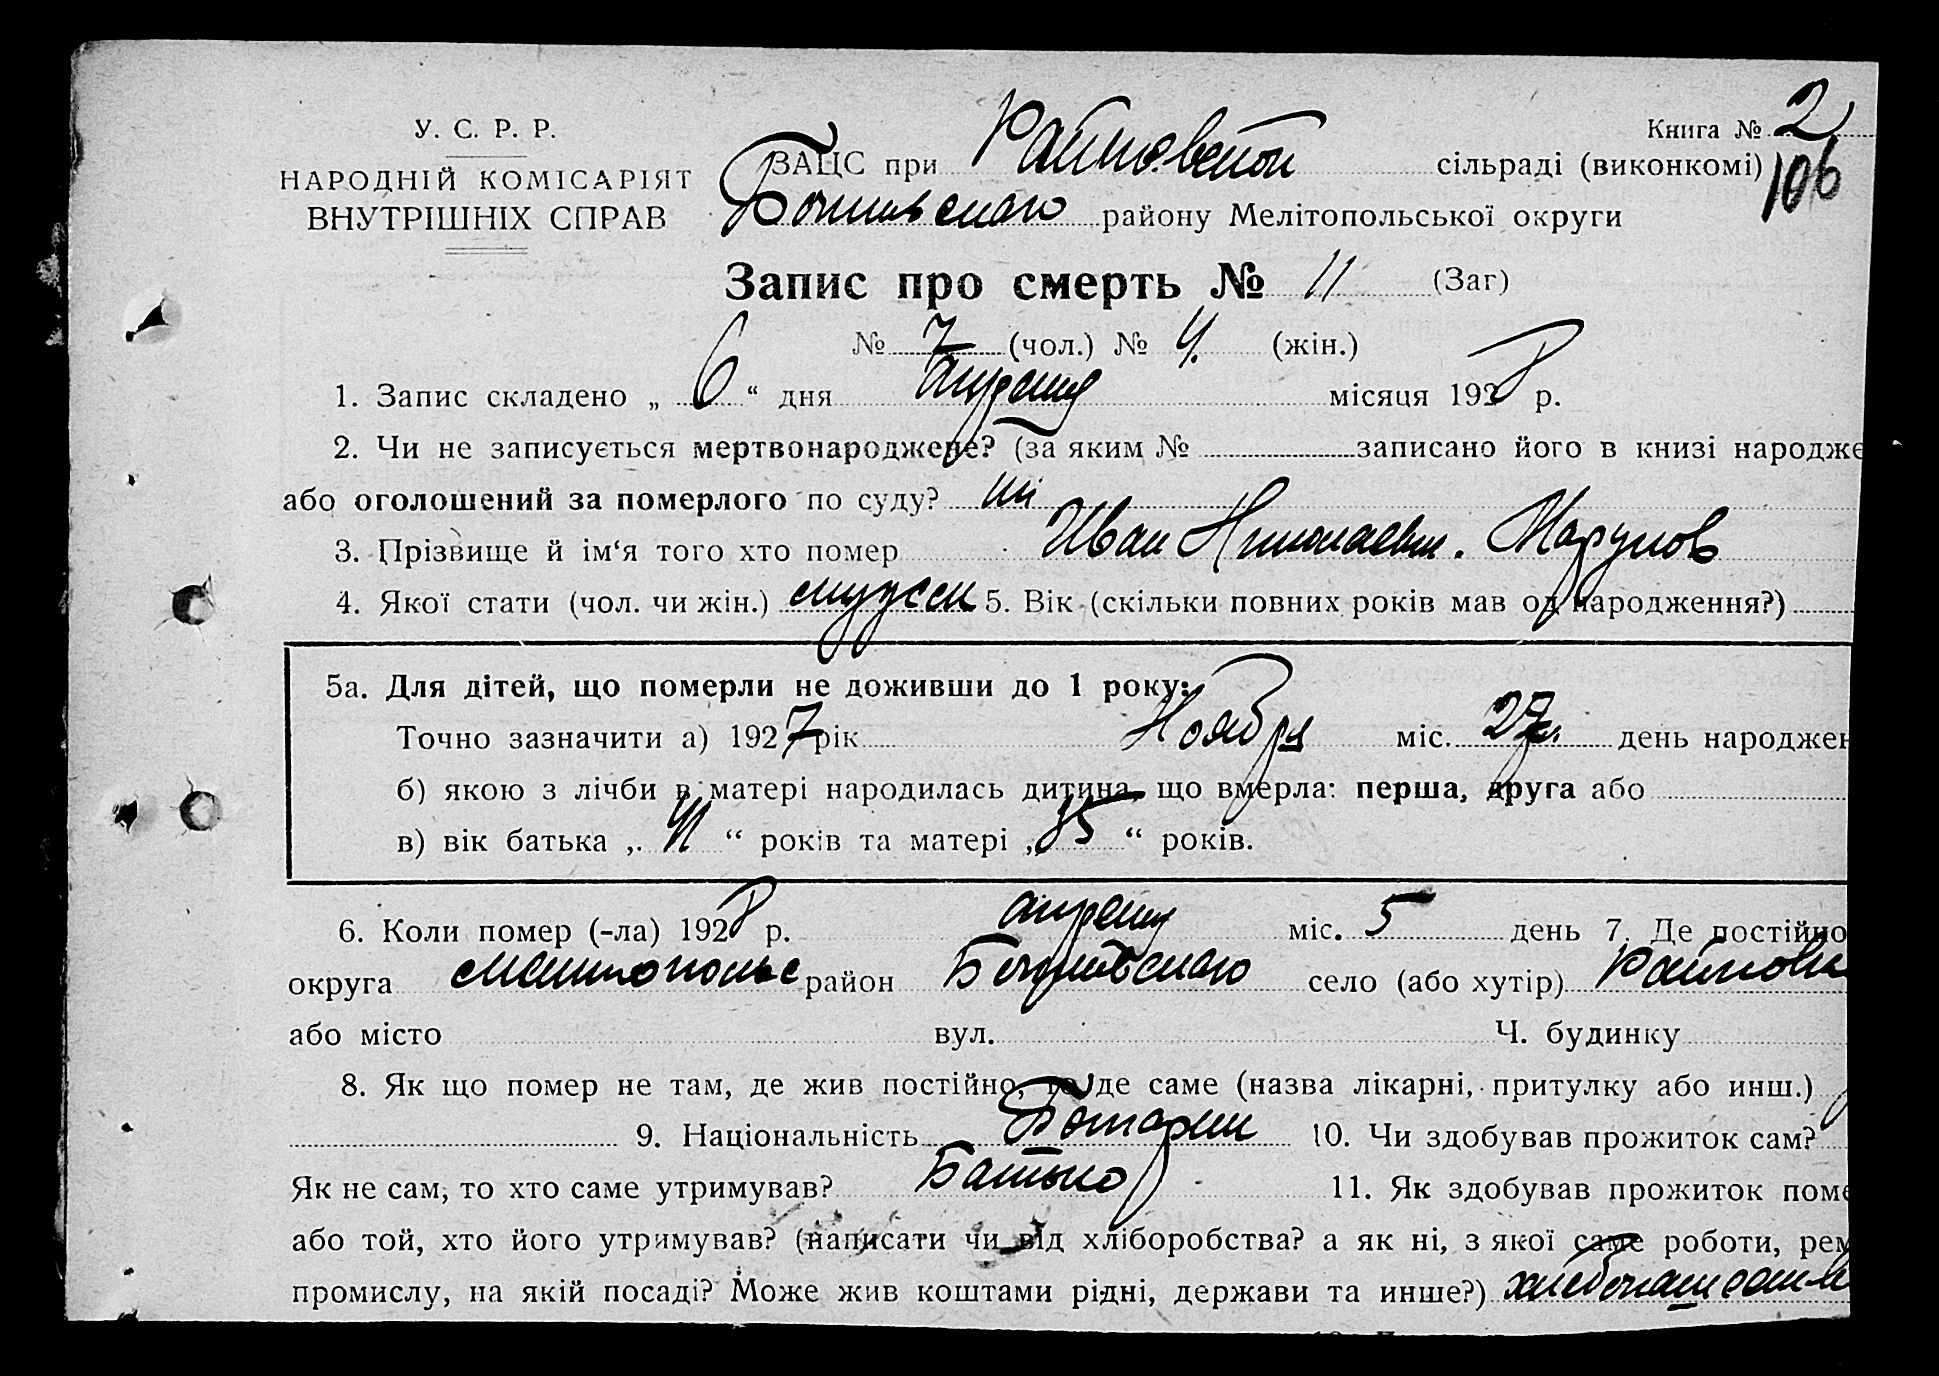 У. С. Р. Р.
НАРОДНІЙ КОМІСАРІЯТ
ВНУТРІШНІХ СПРАВ
Книга № 2
106
ЗАЦС при Райновской сільраді (виконкомі)
району Мелітопольської округи
Запис про смерть № 11 (Заг)
№ 7 (чол.) № 4. (жін.)
1. Запис складено „ 6 “ дня Апреля місяця 1928 р.
2. Чи не записується мертвонароджене? (за яким № записано його в книзі народже
або оголошений за померлого по суду? ні
3. Прізвище й ім‘я того хто помер Иван Николаевич. Марунов
4. Якої стати (чол. чи жін.) 5. Вік (скільки повних років мав од народження?)
5а. Для дітей, що померли не доживши до 1 року:
Точно зазначити а) 1927 рік Ноября міс. 27 день народжен
б) якою з лічби в матері народилась дитина, що вмерла: перша, друга або
в) вік батька „ “ років та матері „ 35 “ років.
6. Коли помер (-ла) 1928 р. апреля міс. 5 день 7. Де постійно
округа район село (або хутір)
або місто вул. Ч. будинку
8. Як що помер не там, де жив постійно, то де саме (назва лікарні, притулку або инш.)
9. Національність Болгарин 10. Чи здобував прожиток сам?
Як не сам, то хто саме утримував? Батько 11. Як здобував прожиток поме
або той, хто його утримував? (написати чи від хліборобства? а як ні, з якої саме роботи, рем
промислу, на якій посаді? Може жив коштами рідні, держави та инше?)